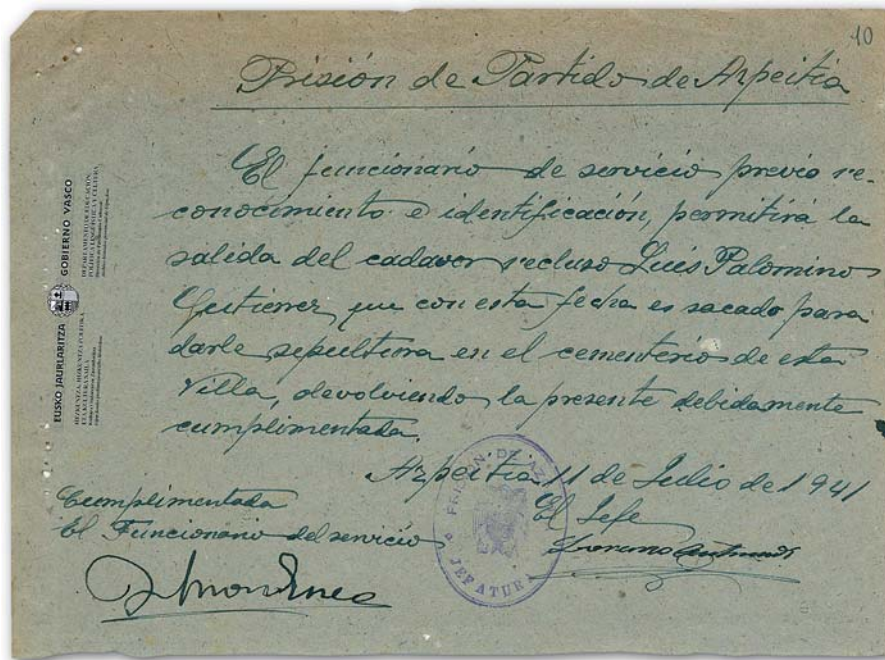 10
Prisión de Partido de Azpeitia
El funcionario de servicio previo re-
conocimiento e identificación, permitirá la
salida del cadaver recluso Luis Palomino
Gutierrez que con esta fecha es sacado para
darle sepultura en el cementerio de esta
Villa, devolviendo la presente debidamente
cumplimentada.
Azpeitia 11 de Julio de 1941
El Jefe
Cumplimentada
El Funcionario del servicio
PRISIÓN DE AZ
JEFATURA
EUSKO JAURLARITZA GOBIERNO VASCO
DEPARTAMENTO DE EDUCACIÓN,
POLÍTICA LINGÜÍSTICA Y CULTURA